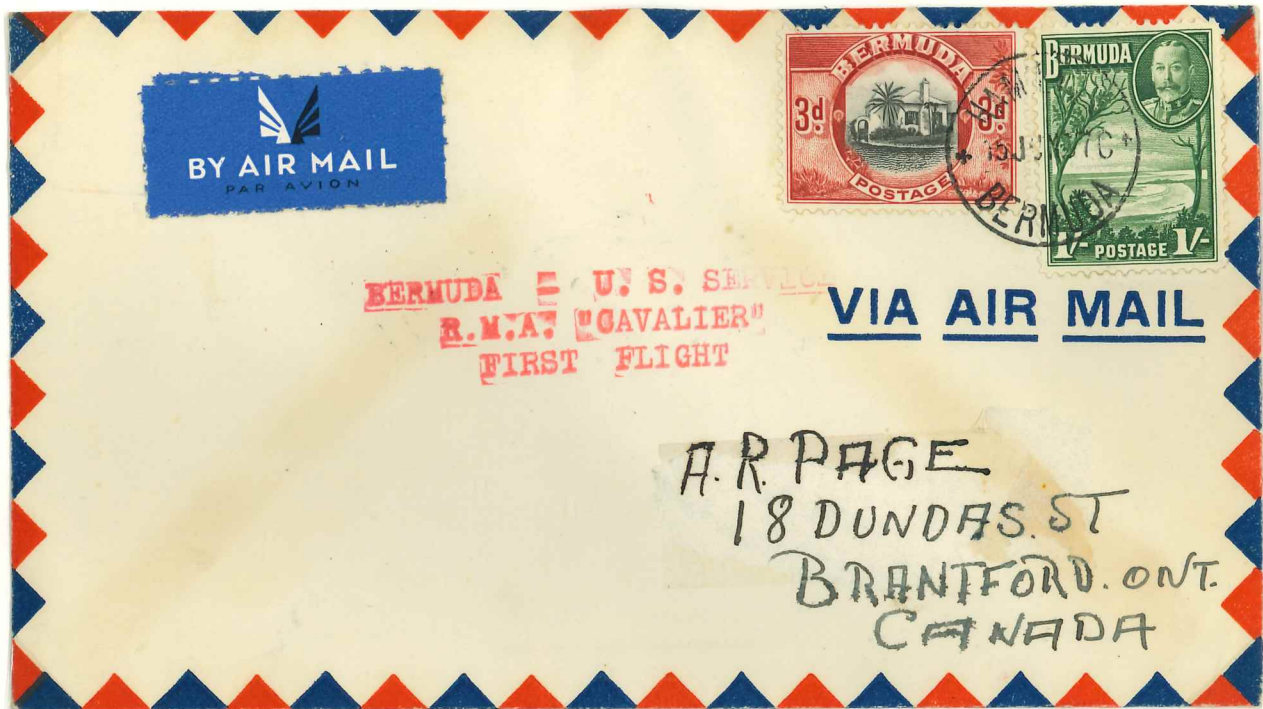 BY AIR MAIL
PAR AVION
BERMUDA
3d 3d
POSTAGE
BERMUDA
1/- POSTAGE 1/-
BERMUDA
BERMUDA = U. S. SERVICE
R.M.A. "CAVALIER"
FIRST FLIGHT
VIA AIR MAIL
A.R. PAGE
18 DUNDAS. ST
BRANTFORD. ONT.
CANADA